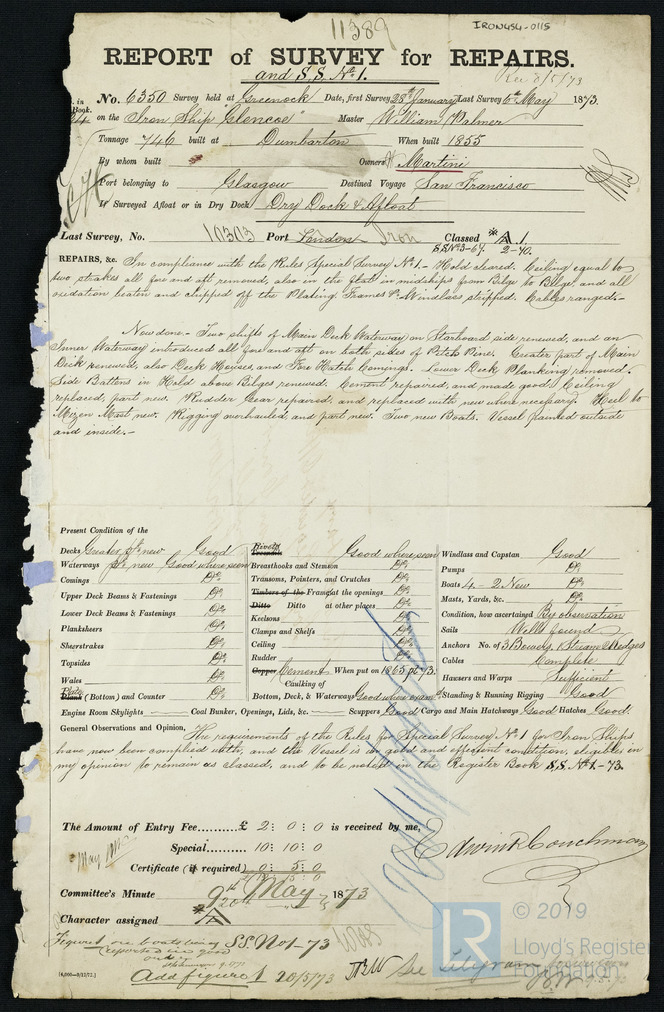 11389
IRON454-0115
REPORT of SURVEY for REPAIRS.
and S.S. No. 1.
Rec 8/5/73
No. 6350 Survey held at Greenock Date, first Survey 28th January Last Survey 6th May 1873.
on the Iron Ship "Glencoe" Master William Palmer
Tonnage 746 built at Dumbarton When built 1855
By whom built Owners Martini
Port belonging to Glasgow Destined Voyage San Francisco
If Surveyed Afloat or in Dry Dock Dry Dock & Afloat
Last Survey, No. 10303 Port London Iron Classed A.1.
S.S.No3-64. 2-70.
REPAIRS, &c. In compliance with the Rules Special Survey No. 1. - Hold cleared. Ceiling equal to
two strakes all fore and aft removed, also in the flat in midships from Bilge to Bilge, and all
oxidation beaten and chipped off the Plating Frames &c. Windlass stripped. Cables ranged.-
Now done. - Two shifts of Main Deck Waterway on Starboard side renewed, and an
Inner Waterway introduced all fore and aft on both sides of Pitch Pine. Greater part of Main
Deck renewed, also Deck Houses, and Fore Hatch Comings. Lower Deck Planking removed.
Side Battens in Hold above Bilges renewed. Cement repaired, and made good. Ceiling
replaced, part new. Rudder Gear repaired, and replaced with new where necessary. Heel to
Mizen Mast new. Rigging overhauled, and part new. Two new Boats. Vessel painted outside
and inside.-
Present Condition of the
Decks Greater pt. new Good
Waterways pt. new Good where seen
Comings Do.
Upper Deck Beams & Fastenings Do.
Lower Deck Beams & Fastenings Do.
Planksheers Do.
Sheerstrakes Do.
Topsides Do.
Wales Do.
Plate Plank (Bottom) and Counter Do.
Rivets Treenails Good where seen
Breasthooks and Stemson Do.
Transons, Pointers, and Crutches Do.
Timbers of the Frame at the openings Do.
Ditto Ditto at other places Do.
Keelsons Do.
Clamps and Shelfs Do.
Ceiling Do.
Rudder Do.
Copper Cement When put on 1865 pt 73.
Caulking of
Bottom, Deck, & Waterways Good where seen
Windlass and Capstan Good
Pumps Do.
Boats 4 - 2 New Do.
Masts, Yards, &c. Do.
Condition, how ascertained By observation
Sails Well found
Anchors No. of 3 Bowers, 1 Stream 2 Kedges
Cables Complete
Hawsers and Warps Sufficient
Standing & Running Rigging Good
Engine Room Skylights — Coal Bunker, Openings, Lids, &c. — Scuppers Good Cargo and Main Hatchways Good Hatches Good.
General Observations and Opinion, The requirements of the Rules for Special Survey No. 1 for Iron Ships
have now been complied with, and the Vessel is in good and efficient condition, eligible, in
my opinion to remain as classed, and to be noted in the Register Book S.S. No. 1.-73.
The Amount of Entry Fee......... £ 2 : 0 : 0 is received by me,
Special........ 10 : 10 : 0
Certificate (if required) 0 : 5 : 0
Edwin R Couchman
Committee's Minute 9th May 1873
20th
Character assigned A
S.S. No 1-73
Add figure 1 20/5/73
See Telegram
© 2019
LR
Lloyd's Register
Foundation